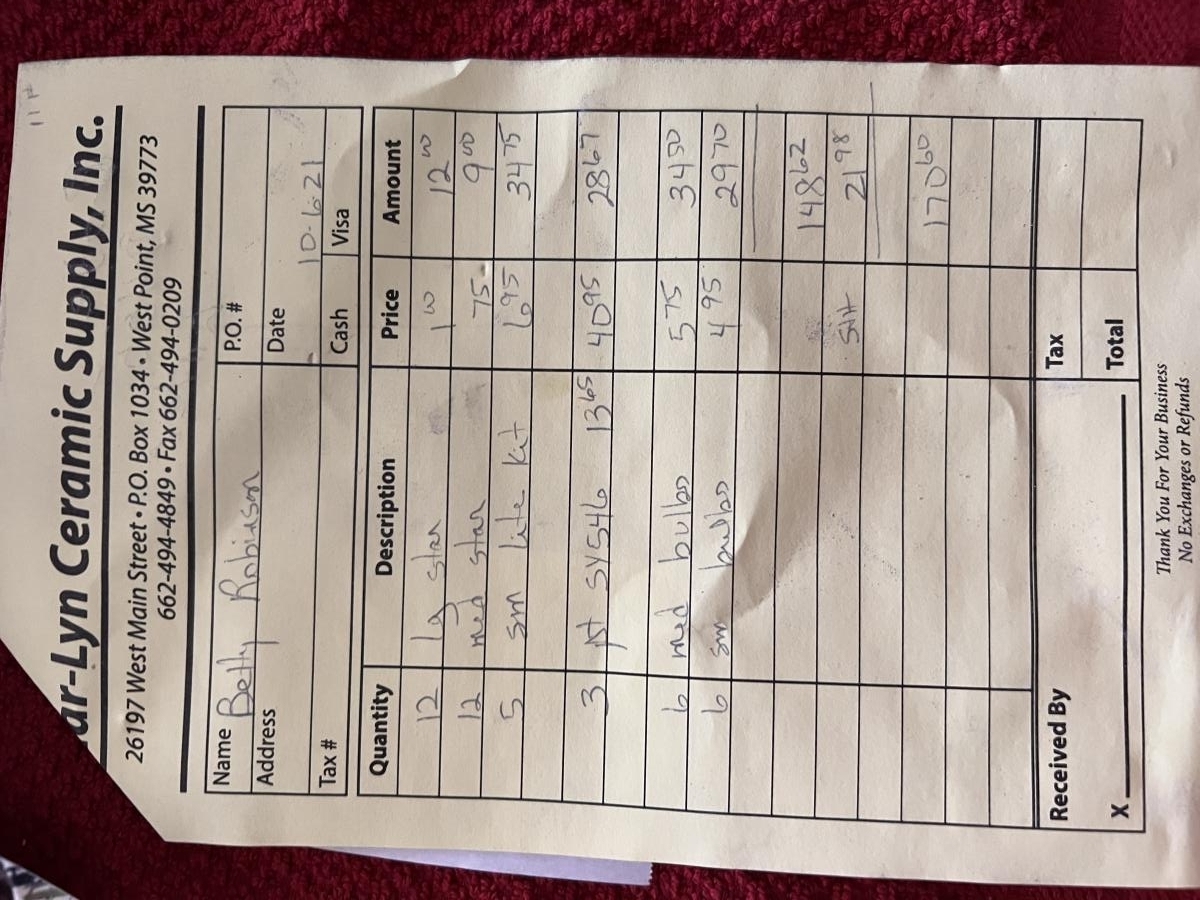 ar-Lyn Ceramic Supply, Inc.
26197 West Main Street • P.O. Box 1034 • West Point, MS 39773
662-494-4849 • Fax 662-494-0209
Name Betty Robinson P.O. #
Address Date 10-6-21
Tax # Cash Visa
Quantity Description Price Amount
12 lg star 1 00 12 00
12 med star 75 9 00
5 sm lite kit 6 95 34 75
3 pt SY546 13 65 40 95 28 67
6 med bulbs 5 75 34 50
6 sm bulbs 4 95 29 70
148 62
S+H 21 98
170 60
Received By Tax
X Total
Thank You For Your Business
No Exchanges or Refunds